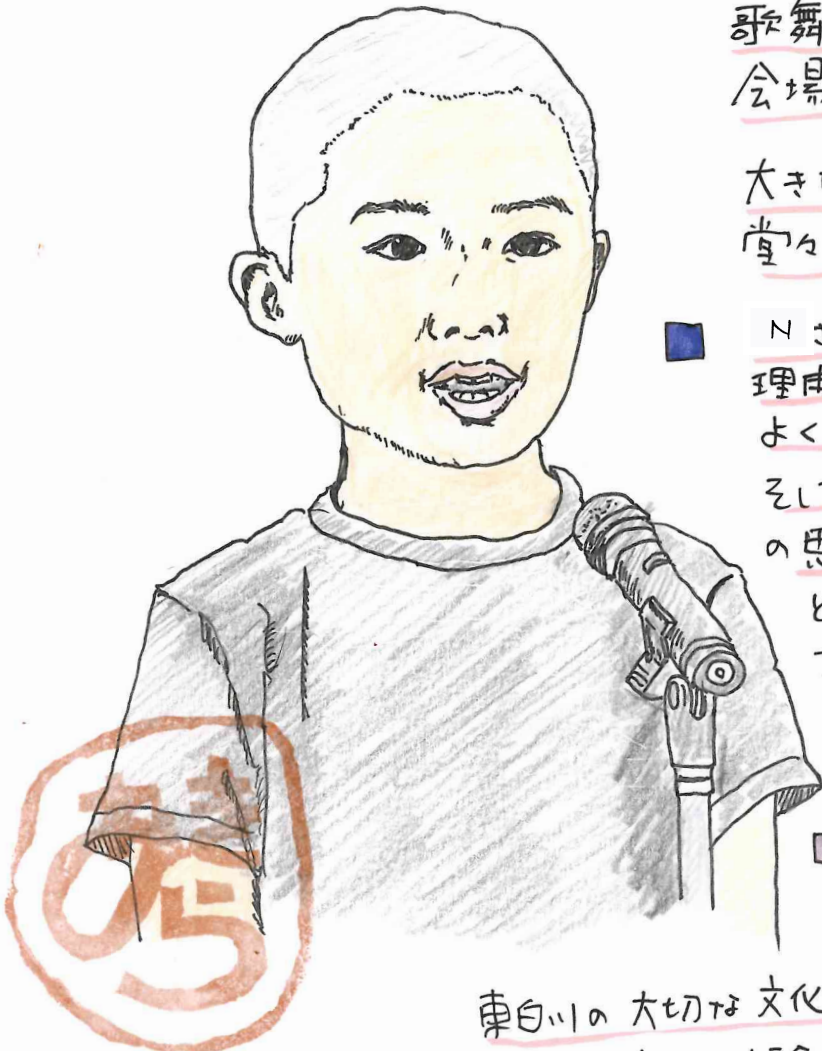 歌舞
会場
大き
堂々
N さ
理由
よく
そし
の思
と
東白川の大切な文化